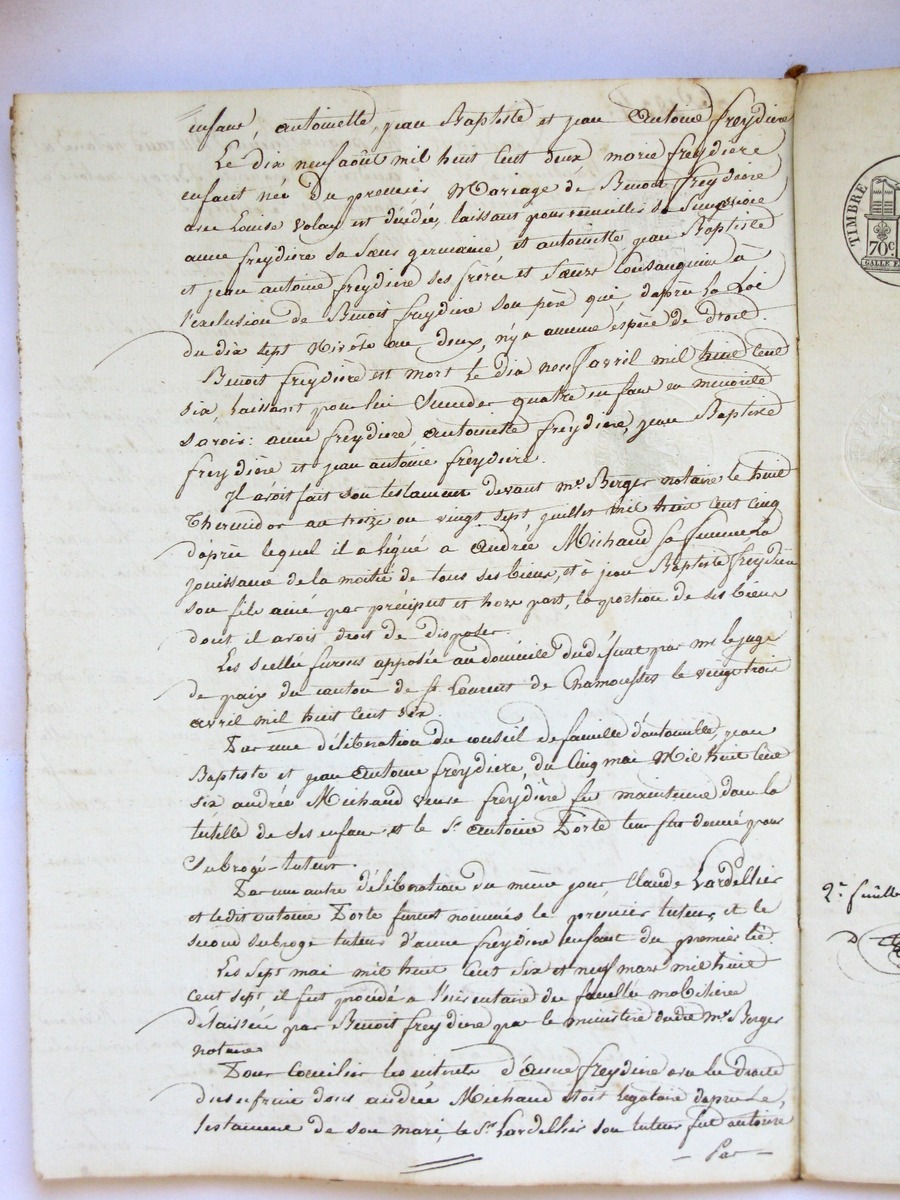 enfant, antoinette, jean Baptiste et jean antoine freydiere
Le dix neuf août mil huit cent deux marie freydiere
enfant née du premier Mariage de Benoit freydiere
avec Louise Volay est décédée, laissant pour recueillir sa Succession
anne freydiere sa sœur germaine et antoinette jean Baptiste
et jean antoine freydiere ses frere et sœurs Consanguins à
l'exclusion de Benoit freydiere son père qui, d'après La Loi
du dix sept Nivose an deux, n'y a aucune éspèce de droit.
Benoit freydiere est mort Le dix neuf avril mil huit cent
six, laissant pour lui Succeder quatre enfant en minorité
savoir: anne freydiere, antoinette freydiere, jean Baptiste
freydière et jean antoine freydiere.
Il avoit fait son testament devant me. Berger notaire le huit
thermidor an treize ou vingt sept juillet mil huit cent cinq
d'après lequel il a légué a andrée Michaud sa femme La
jouissance de la moitié de tous ses biens, et à jean Baptiste freydiere
son fils ainé par préciput et hors part, la portion de ses biens
dont il avoit droit de disposer.
Les scellés furent apposés au domicile du défunt par mr le juge
de paix du canton de st. Laurent de Chamousset le vingt trois
avril mil huit cent six.
Par une déliberation du conseil de famille d'antoinette, jean
Baptiste et jean antoine freydiere, du cinq mai Mil huit cent
six andrée Michaud veuve freydière fut maintenue dans la
tutelle de ses enfans et le Sr. antoine Porte leur fut donné pour
Subrogé-tuteur.
Par une autre déliberation du même jour Claude Lardellier
et ledit antoine Porte furent nommés le premier tuteur et le
second subrogé tuteur d'anne freydiere enfant du premier lit.
Les sept mai mil huit cent six et neuf mars mil huit
cent sept il fut procédé a l'inventaire des facultés mobilieres
délaissées par Benoit freydiere par le ministère dudit me. Berger
notaire
Pour Concilier les interets d'anne freydiere avec les droits
d'usufruit dont andrée Michaud étoit légataire d'après Le
testament de son mari, le Sr. Lardellier son tuteur fut autorisé
— Par —
TIMBRE
70c
2e. feuille